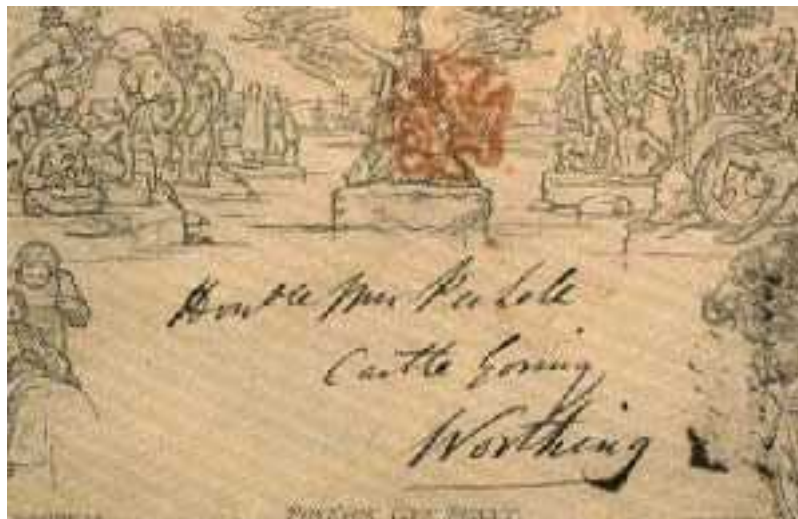 Honble Mrs Pechell
Castle Goring
Worthing
POSTAGE ONE PENNY